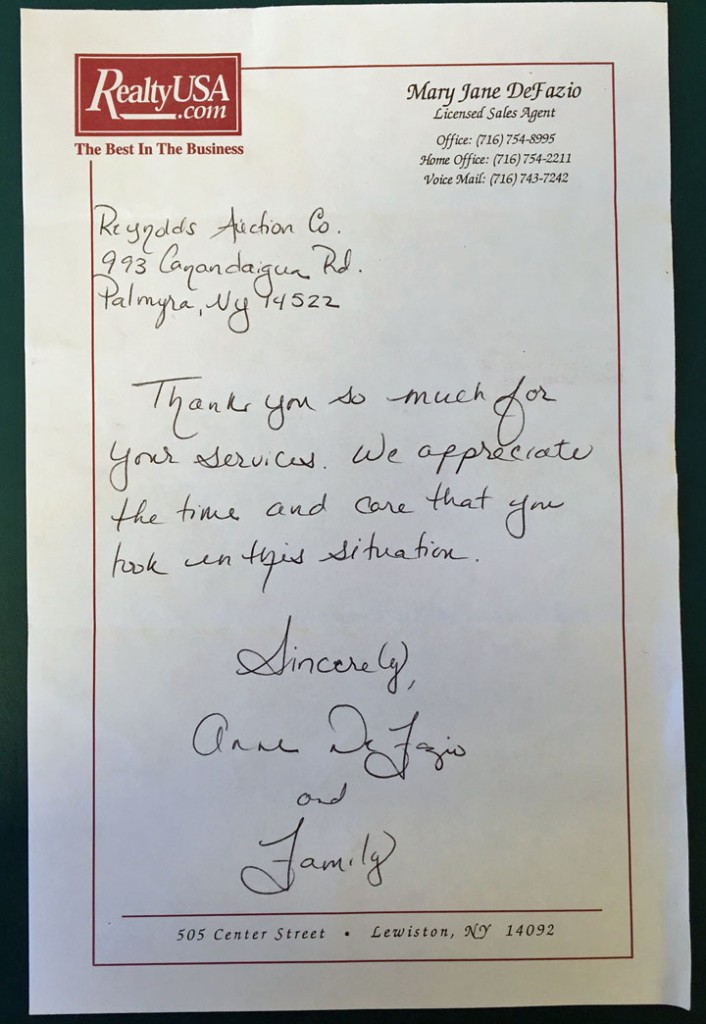 RealtyUSA
.com
The Best In The Business
Mary Jane DeFazio
Licensed Sales Agent
Office: (716) 754-8995
Home Office: (716) 754-2211
Voice Mail: (716) 743-7242
Reynolds Auction Co.
993 Canandaigua Rd.
Palmyra, Ny 14522
Thank you so much for
your services. We appreciate
the time and care that you
took in this situation.
Sincerely,
Anne DeFazio
and
Family
505 Center Street • Lewiston, NY 14092